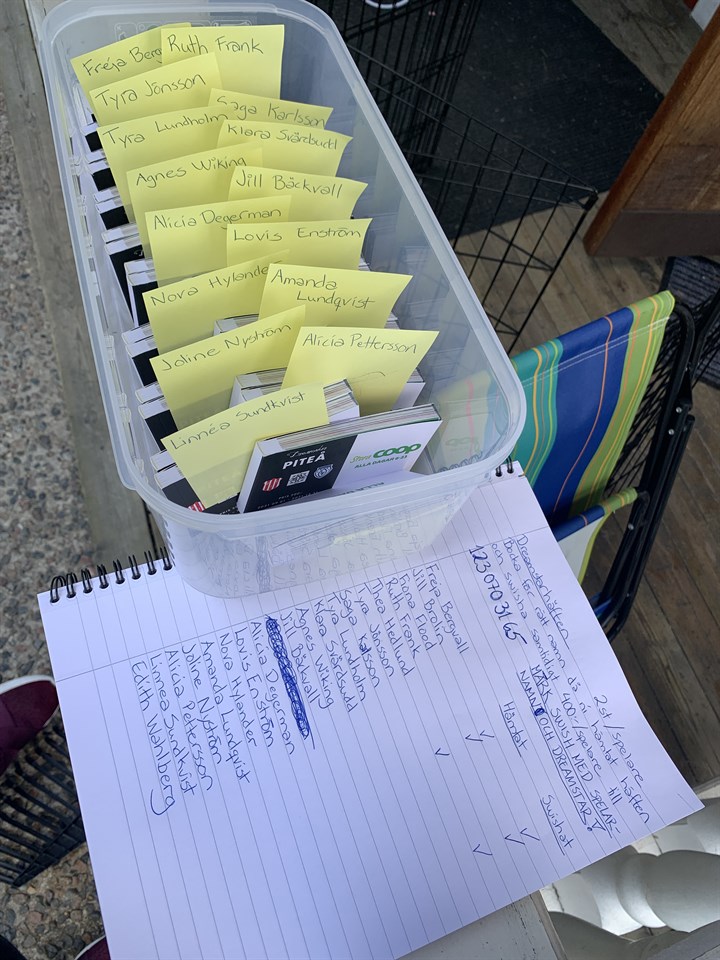 Freja Berg
Ruth Frank
Tyra Jönsson
Saga Karlsson
Tyra Lundholm
Klara Svärdsudd
Agnes Wiking
Jill Bäckvall
Alicia Degerman
Lovis Enström
Nova Hylander
Amanda
Lundqvist
Joline Nyström
Alicia Pettersson
Linnéa Sundkvist
PITEÅ
Stora coop
ALLA DAGAR 8-23
Dreamstarhäften 2st/spelare
Bocka för rätt namn då ni hämtat häften
och swisha samtidigt 400:-/spelare till
1230703165 MÄRK SWISH MED SPELAR-
NAMN OCH DREAMSTAR!
Hämtat Swishat
Freja Bergvall
Jill Brolin
Fiona Flood
Ruth Frank
Thea Hedlund
Tyra Jönsson
Saga Karlsson
Tyra Lundholm
Klara Svärdsudd
Agnes Wiking
Jill Bäckvall
Alicia Degerman
Lovis Enström
Nova Hylander
Amanda Lundqvist
Joline Nyström
Alicia Pettersson
Linnea Sundkvist
Edith Wahlberg